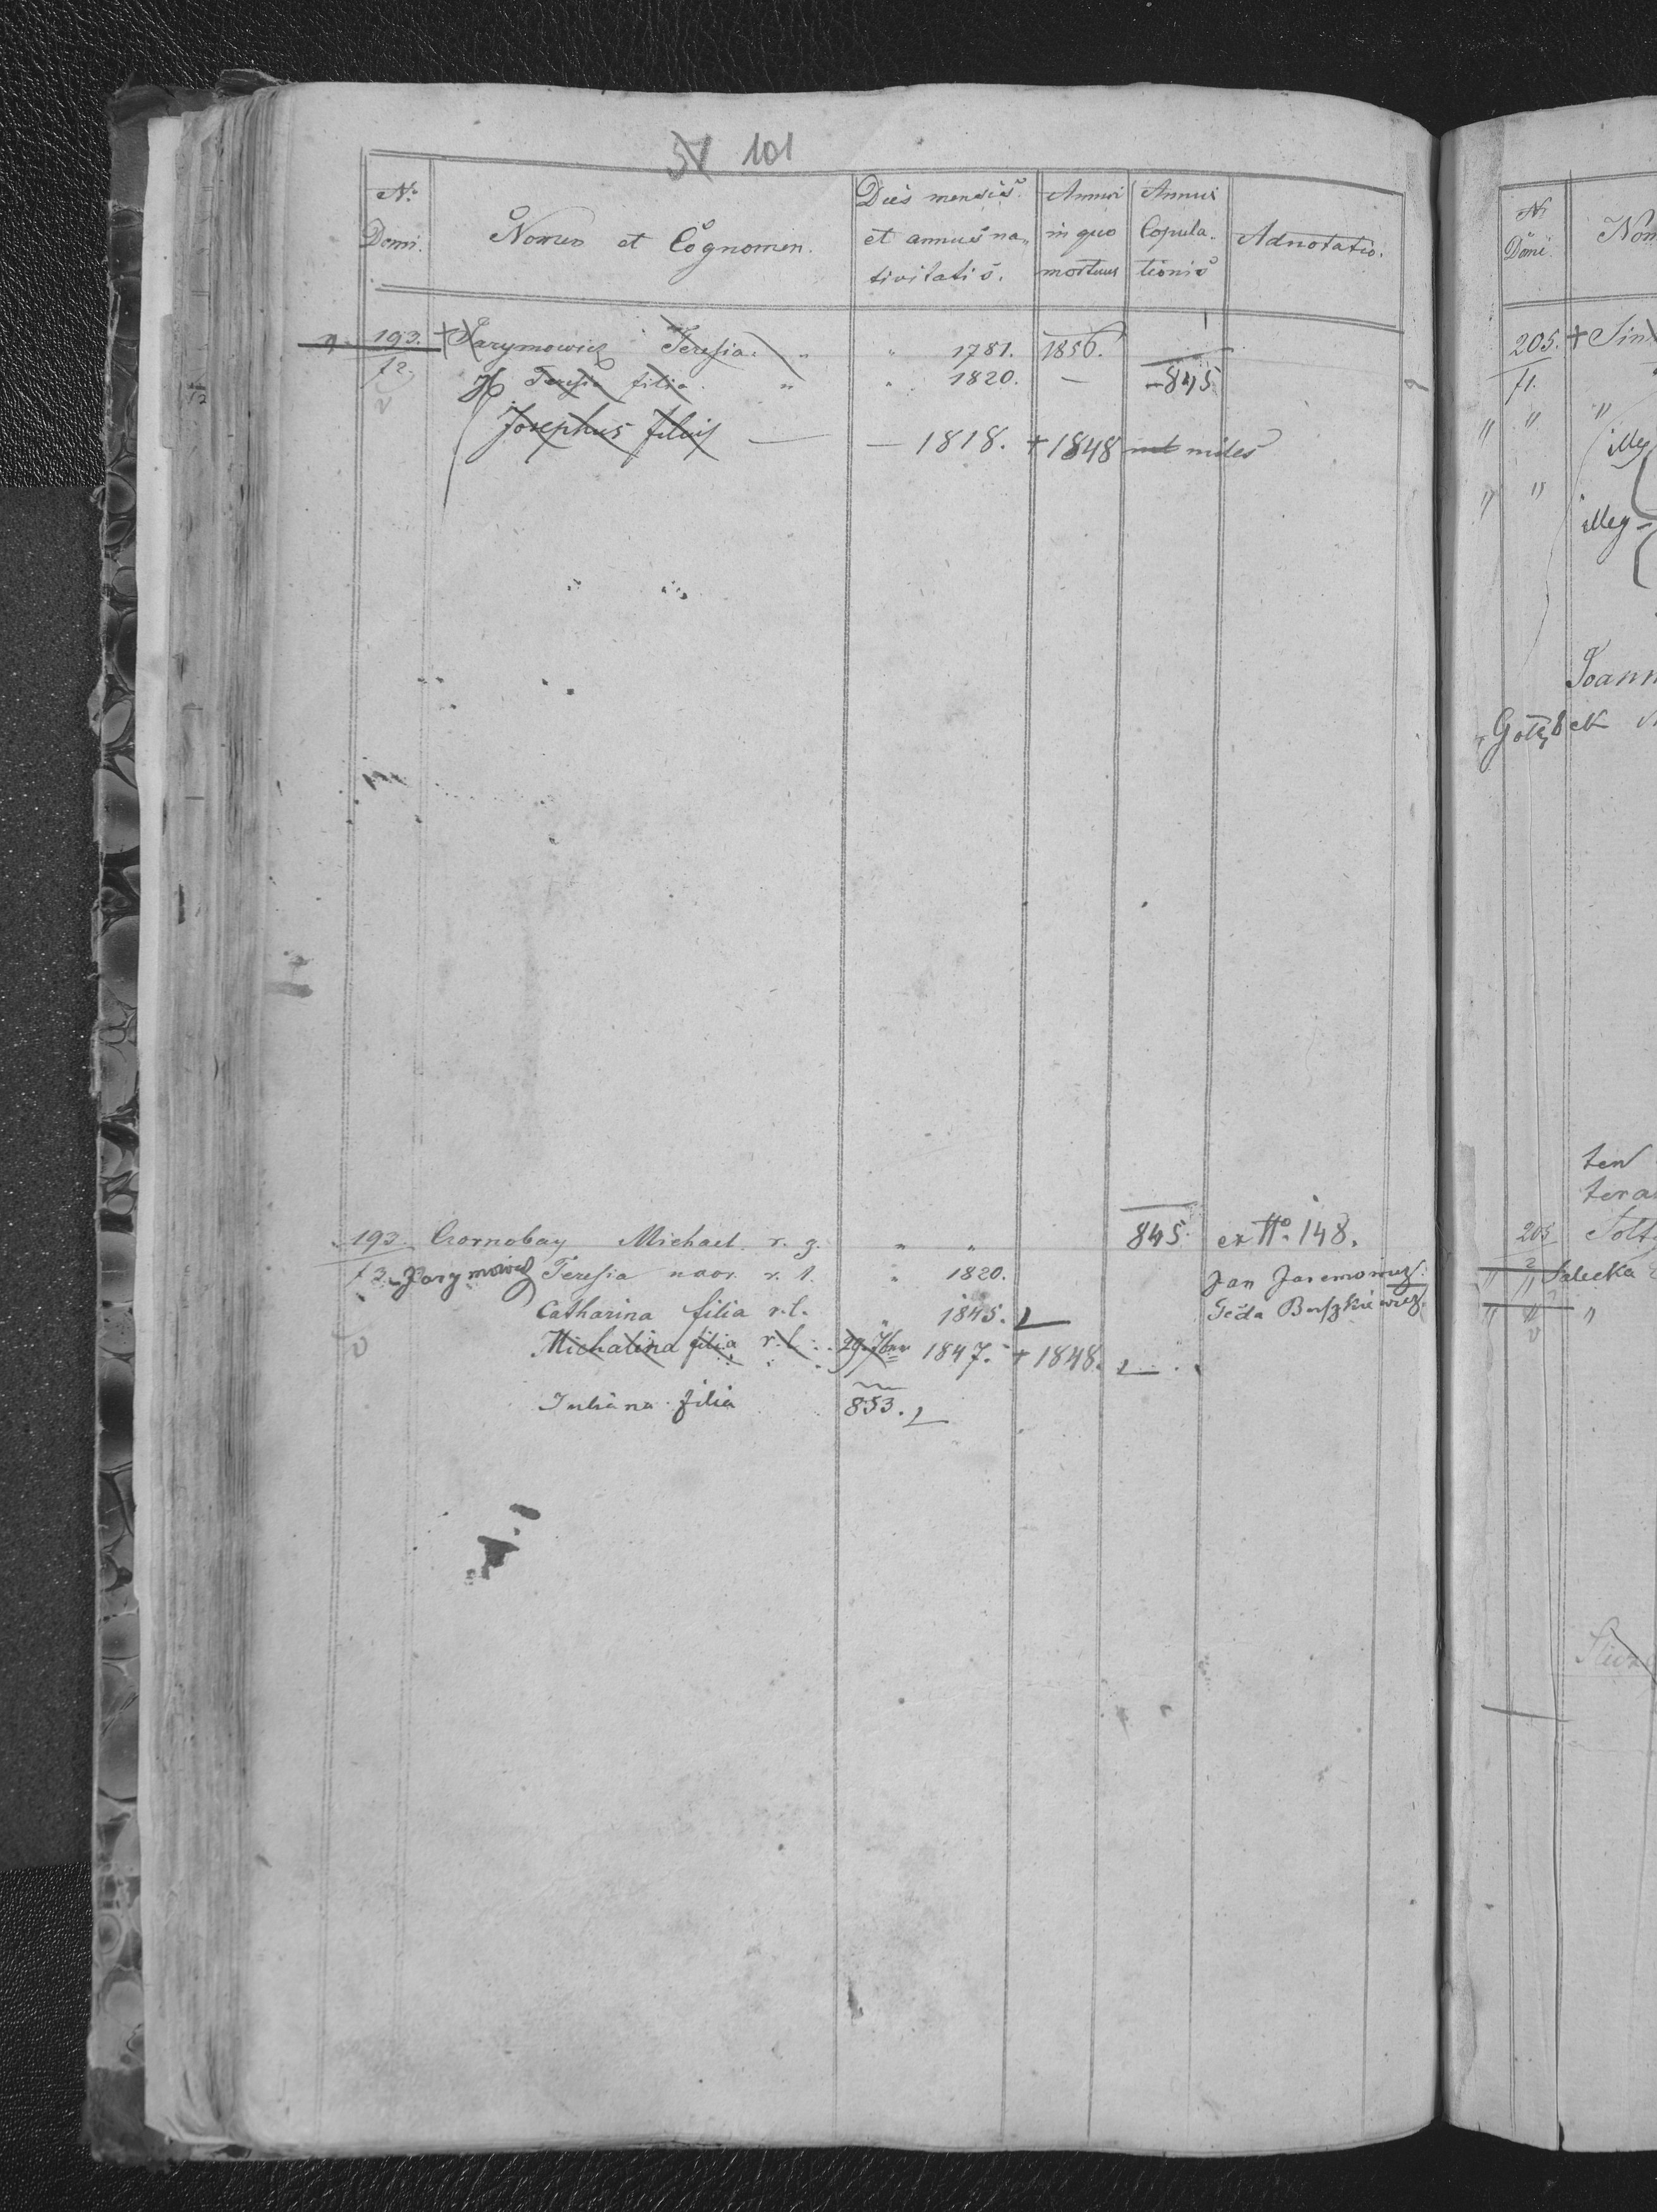 57 101
No. Domi. Nomen et Cognomen. Dies mensis et annus nativitatis. Annus in quo mortuus Annus Copulationis Adnotatio.
193. + Jarymowicz Teresia " " 1781. 1856.
f2. Teresia filia " " 1820. — 845
Josephus filius — — 1818. + 1848 miles
193. Czornobay Michael r. g. " " 845. ex No. 148.
f3. Jarymowicz Teresia uxor r. l. " 1820. Jan Jaremowicz
Catharina filia r. l. " 1845.
Michalina filia r. l. 29 7bris 1847. + 1848.
Juliana filia 853.
No Domi Nom
205. + Sin
f1.
" " "
illeg
" "
illeg -
Joann
Gołębek
ten
tera
205 Sołt
2 Salecka
" " "